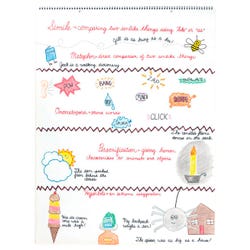 Simile - comparing two unlike things using "like" or "as"
Jill is as busy as a bee!
Metaphor - direct comparison of two unlike things
Jack is a walking dictionary
POW
BANG
SPLAT
CRUNCH
Onomatopoeia - sound words
CLICK!
Personification - giving human
characteristics to animals and objects
The sun smiled
from behind the
clouds
The candle flame
danced in the dark.
Hyperbole - an extreme exaggeration
My backpack
weighs a ton!
The spider was as big as a house!